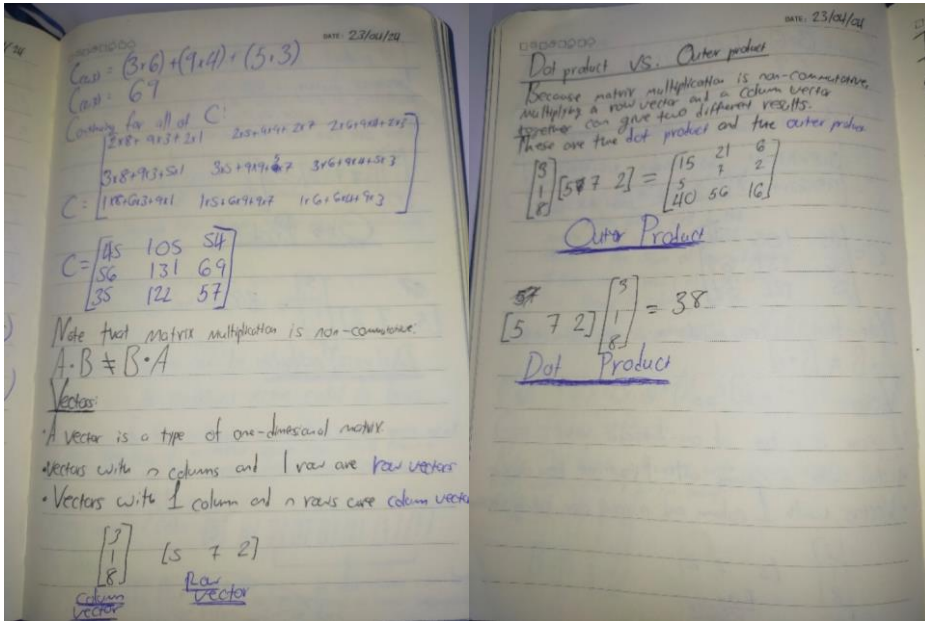 DATE: 23/04/24
C(2,3) = (3x6)+(9x4)+(5x3)
C(2,3) = 69
Continuing for all of C:
2x8+9x3+2x1 2x5+9x9+2x7 2x6+9x4+2x3
3x8+9x3+5x1 3x5+9x9+5x7 3x6+9x4+5x3
C = 1x8+6x3+9x1 1x5+6x9+9x7 1x6+6x4+9x3
45 105 54
C = 56 131 69
35 122 57
Note that matrix multiplication is non-commutative:
A·B ≠ B·A
Vectors:
• A vector is a type of one-dimesional matrix.
• Vectors with n columns and 1 row are row vectors
• Vectors with 1 column and n rows are column vector
3
1 [5 7 2]
8
Column Row
vector vector
DATE: 23/04/24
Dot product vs. Outer product
Because matrix multiplication is non-commutative,
multiplying a row vector and a column vector
together can give two different results.
These are the dot product and the outer product.
3 15 21 6
1 [5 7 2] = 5 7 2
8 40 56 16
Outer Product
3
[5 7 2] 1 = 38
8
Dot Product